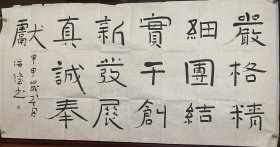 嚴格精
細團結
實干創
新發展
真誠奉
獻
甲申歲